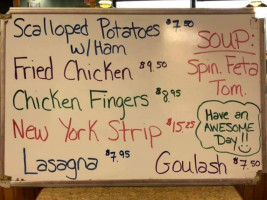 Scalloped Potatoes $7.50
w/Ham
Fried Chicken $9.50
Chicken Fingers $8.95
New York Strip $15.25
Lasagna $7.95
Goulash $7.50
SOUP:
Spin. Feta
Tom.
Have an
AWESOME
Day!!